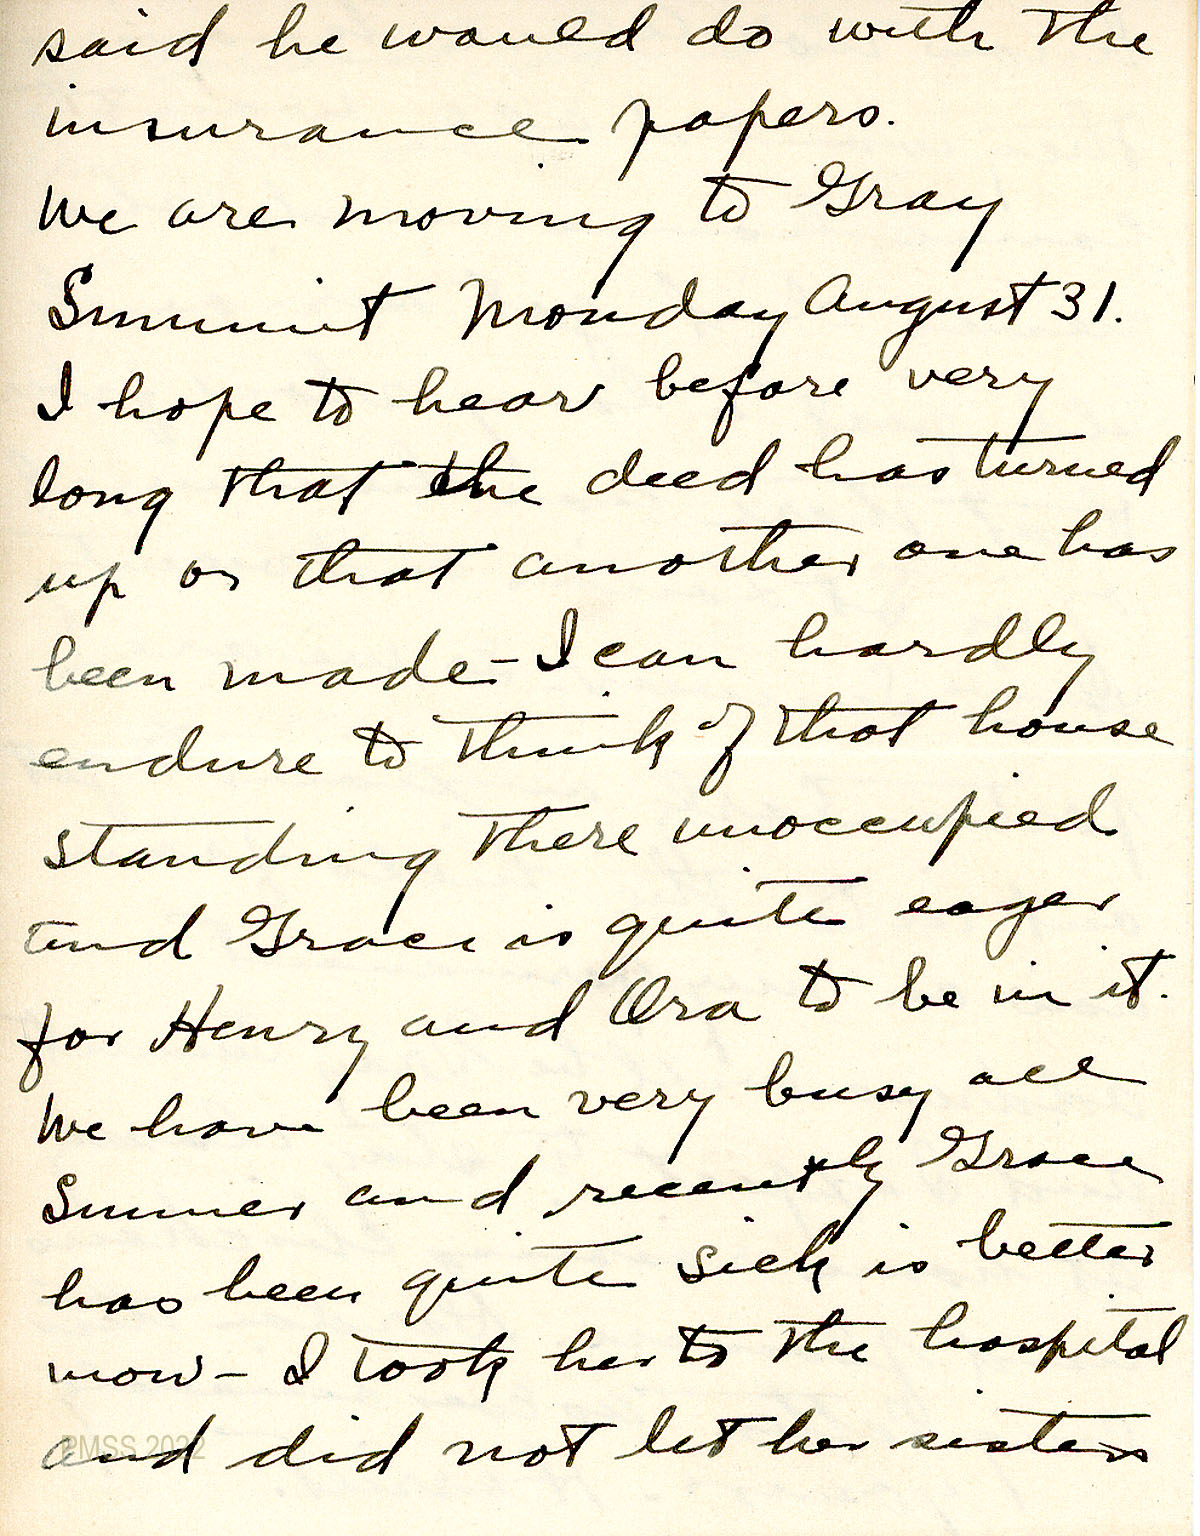 said he would do with the
insurance papers.
We are moving to Gray
Summit Monday August 31.
I hope to hear before very
long that the deed has turned
up or that another one has
been made - I can hardly
endure to think of that house
standing there unoccupied
and Grace is quite eager
for Henry and Ora to be in it.
We have been very busy all
Summer and recently Grace
has been quite sick is better
now - I took her to the hospital
and did not let her sisters
PMSS 2022